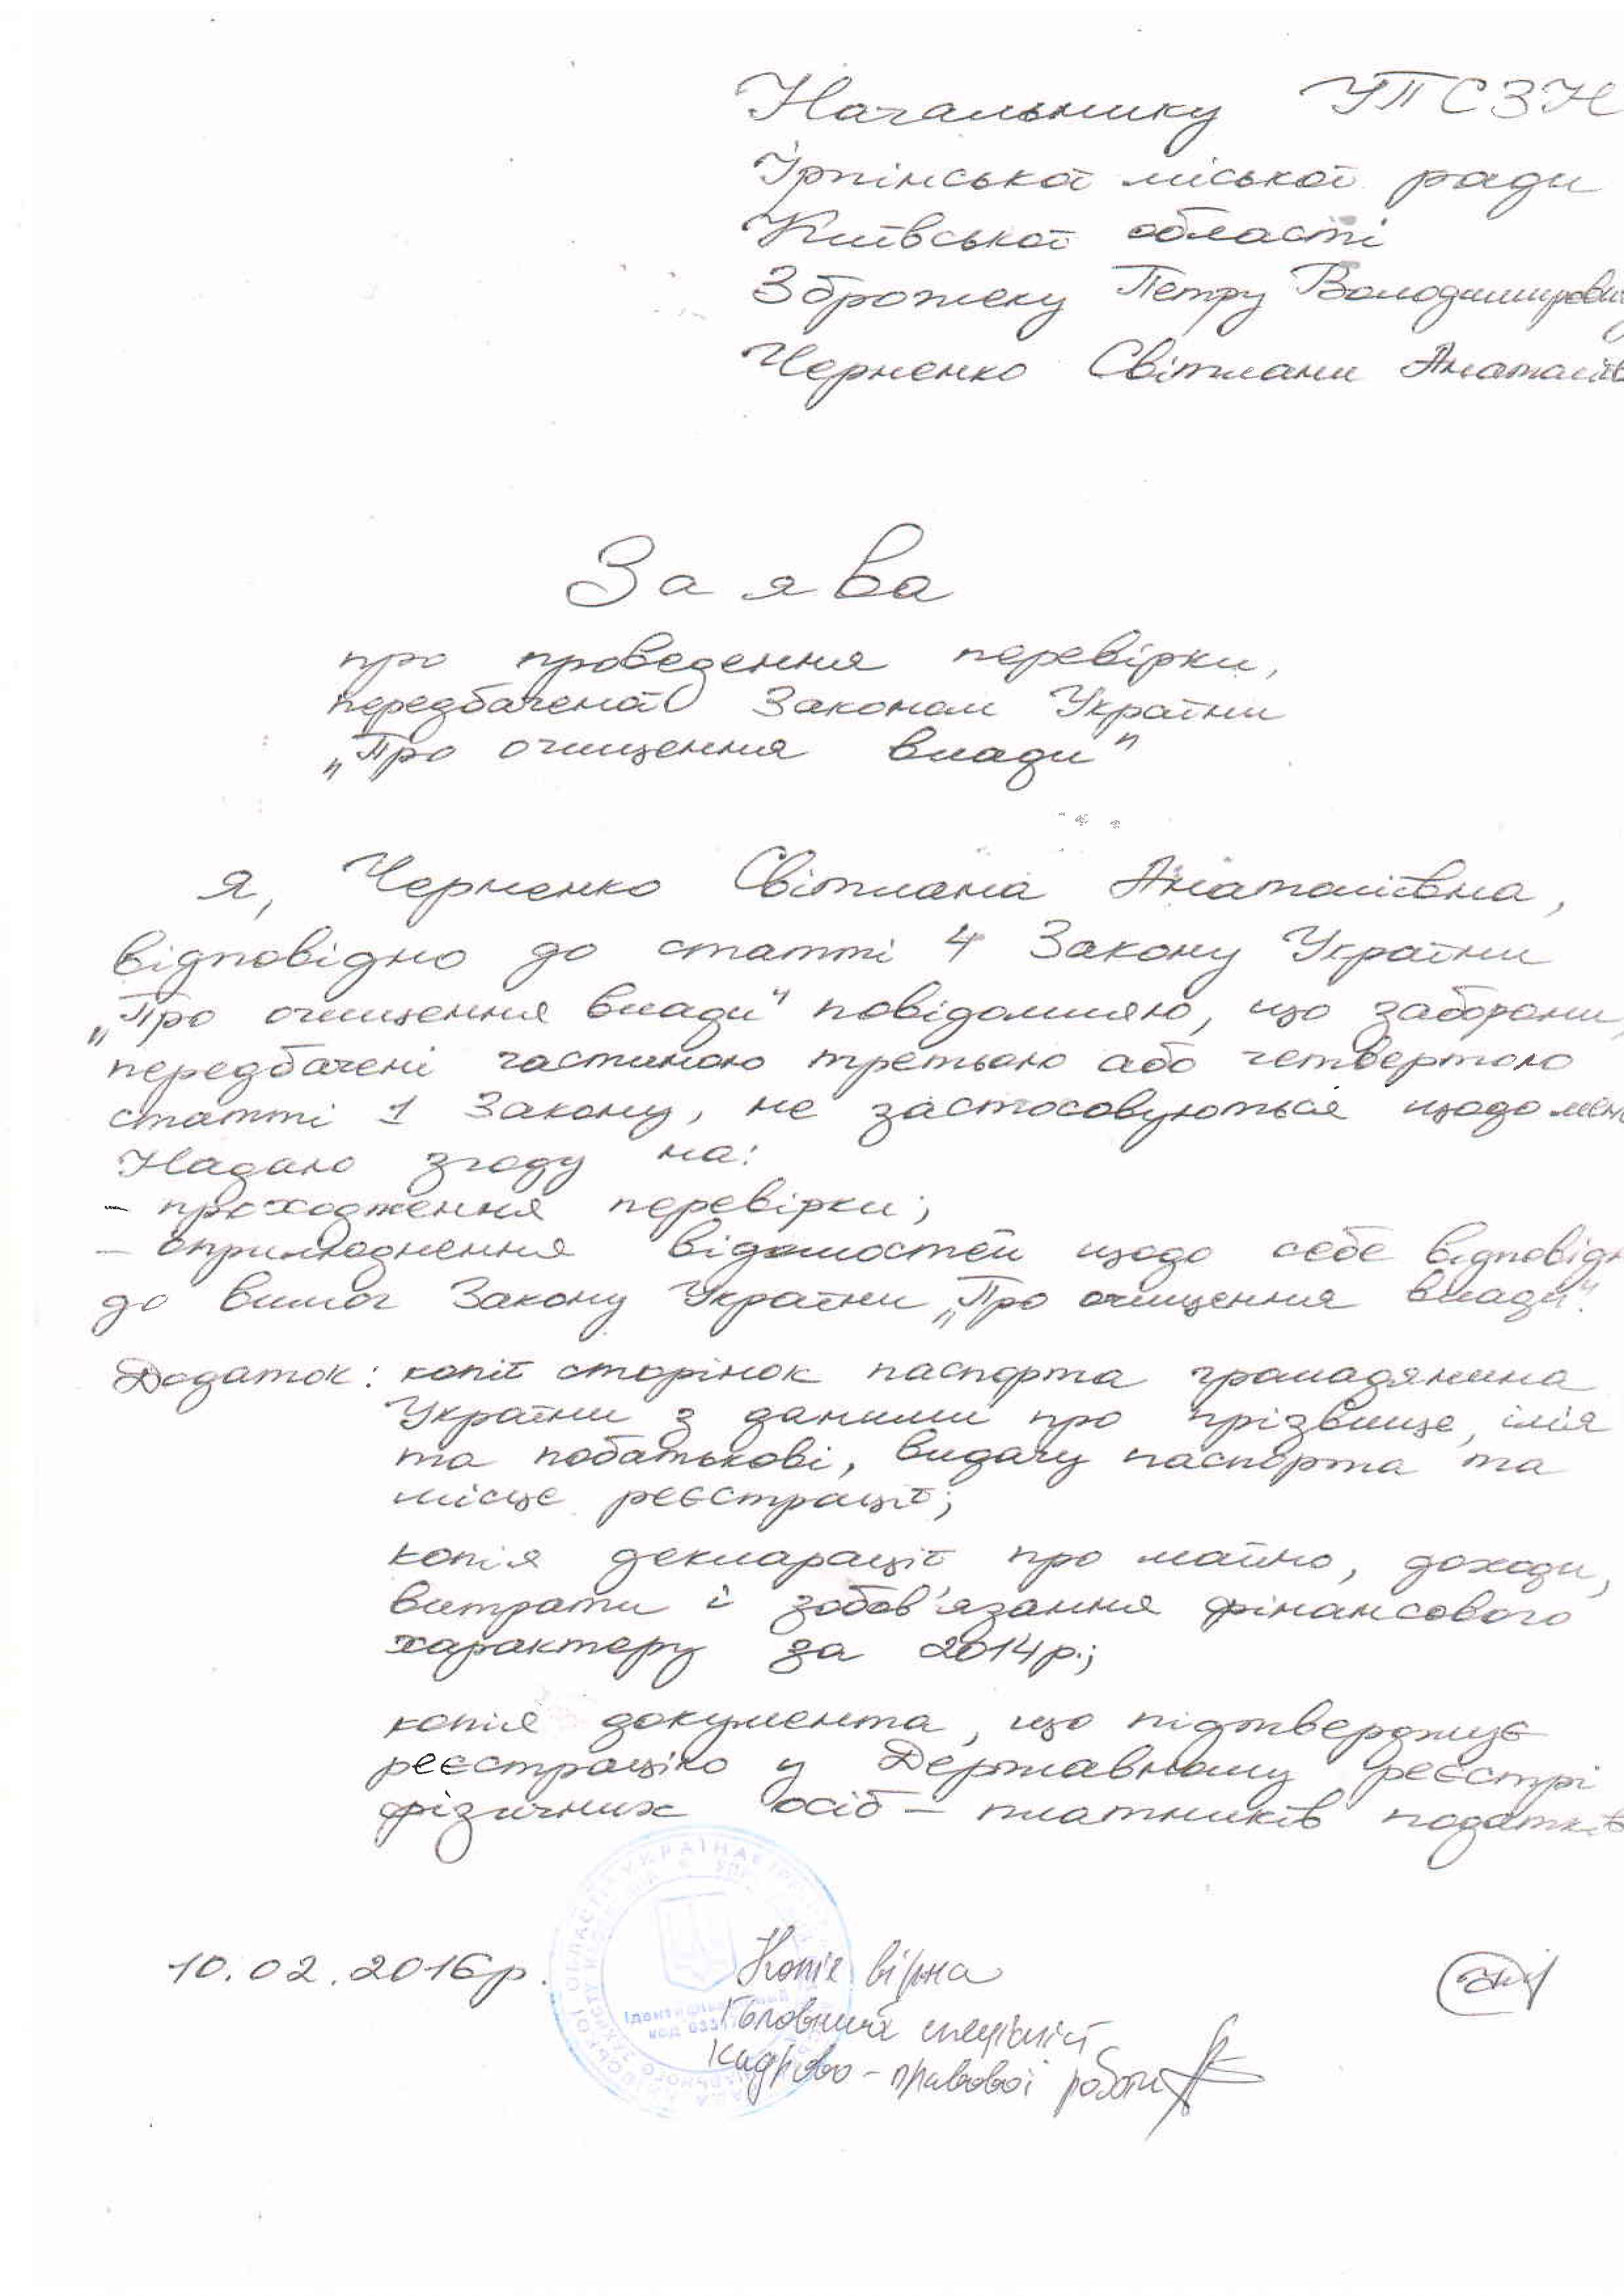 Начальнику УПСЗН
Ірпінської міської ради
Київської області
Зброжеку Петру Володимирови
Черненко Світлани Анатоліїв
Заява
про проведення перевірки,
передбаченої Законом України
„Про очищення влади"
Я, Черненко Світлана Анатоліївна,
відповідно до статті 4 Закону України
„Про очищення влади" повідомляю, що заборони,
передбачені частиною третьою або четвертою
статті 1 Закону, не застосовуються щодо мене
Надаю згоду на:
- проходження перевірки;
- оприлюднення відомостей щодо себе відповідн
до вимог Закону України „Про очищення влади".
Додаток: копії сторінок паспорта громадянина
України з даними про прізвище, імія
та побатькові, видачу паспорта та
місце реєстрації;
копія декларації про майно, доходи,
витрати і зобов'язання фінансового
характеру за 2014р.;
копія документа, що підтверджує
реєстрацію у Державному реєстрі
фізичних осіб - платників податків
10.02.2016р.
Копія вірна
Головний спеціаліст
кадрово-правової роботи
УКРАЇНА